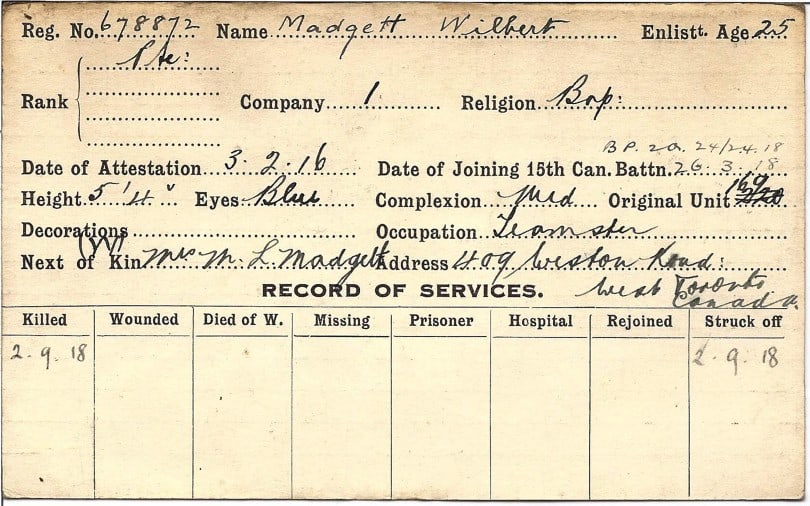 Reg. No. 678872 Name Madgett Wilbert Enlistt. Age 25
Pte:
Rank Company 1 Religion Bap:
B P. 2a. 24/24.18
Date of Attestation 3.2.16 Date of Joining 15th Can. Battn. 26.3.18
Height 5'4" Eyes Blue Complexion Med Original Unit 169
Decorations Occupation Teamster
Next of Kin (W) Mrs M. L Madgett Address 409 Weston Road:
West Toronto
Canada.
RECORD OF SERVICES.
Killed Wounded Died of W. Missing Prisoner Hospital Rejoined Struck off
2.9.18 2.9.18